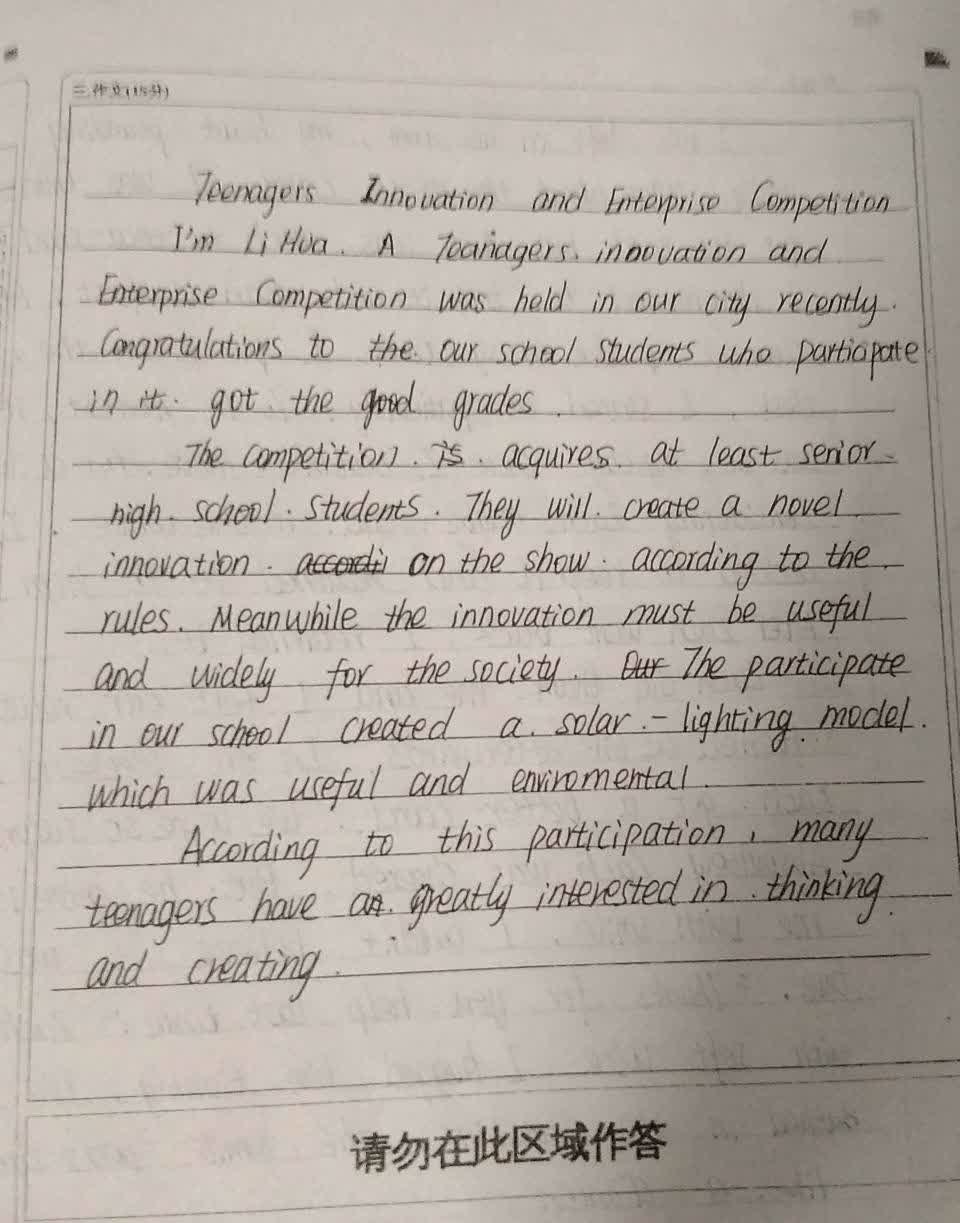 三.作文(15分)
Teenagers Innovation and Enterprise Competition
I'm Li Hua. A Teanagers. inoovation and
Enterprise Competition was held in our city recently.
Congratulations to the. our school students who particapate
in it. got the good grades.
The competition. is. acquires. at least senior
high. school. students. They will. create a novel
innovation. accordi on the show. according to the
rules. Meanwhile the innovation must be useful
and widely for the society. Our The participate
in our school created a. solar.-lighting model.
which was useful and enviromental.
According to this participation, many
teenagers have an. greatly interested in. thinking
and creating.
请勿在此区域作答